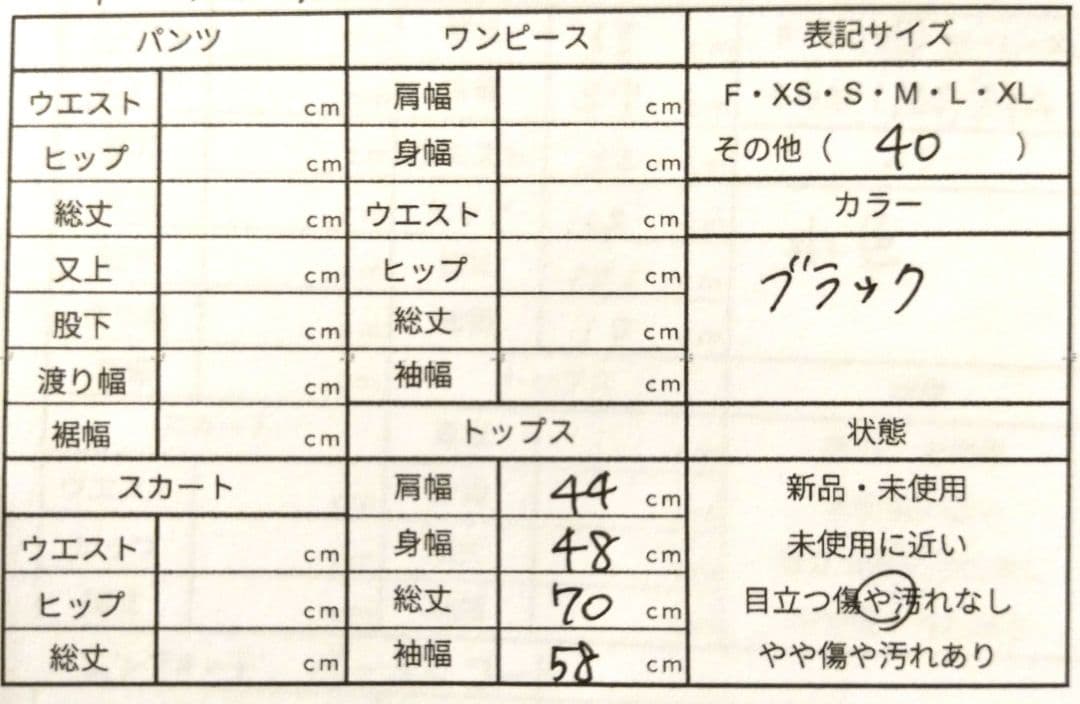 パンツ ワンピース 表記サイズ
ウエスト cm 肩幅 cm F・XS・S・M・L・XL
ヒップ cm 身幅 cm その他（ 40 ）
総丈 cm ウエスト cm カラー
又上 cm ヒップ cm ブラック
股下 cm 総丈 cm
渡り幅 cm 袖幅 cm
裾幅 cm トップス 状態
スカート 肩幅 44 cm 新品・未使用
ウエスト cm 身幅 48 cm 未使用に近い
ヒップ cm 総丈 70 cm 目立つ傷や汚れなし
総丈 cm 袖幅 58 cm やや傷や汚れあり